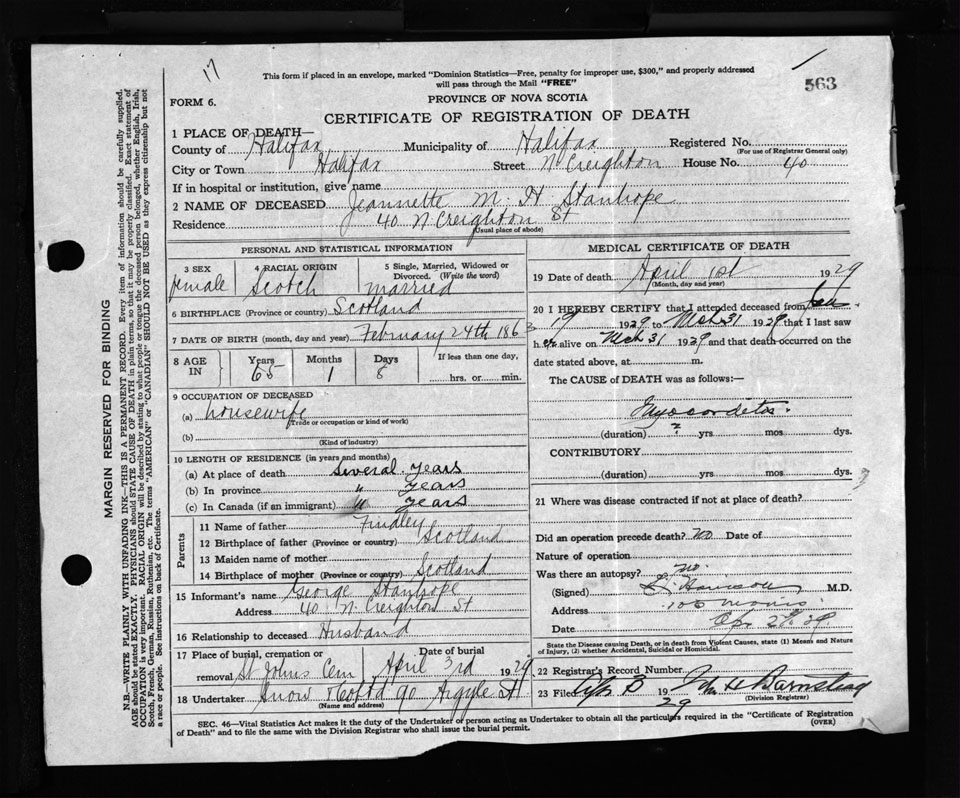 17
This form if placed in an envelope, marked "Dominion Statistics—Free, penalty for improper use, $300," and properly addressed
will pass through the Mail "FREE"
563
FORM 6.
PROVINCE OF NOVA SCOTIA
CERTIFICATE OF REGISTRATION OF DEATH
1 PLACE OF DEATH—
County of Halifax Municipality of Halifax Registered No.
(For use of Registrar General only)
City or Town Halifax Street N Creighton House No. 40
If in hospital or institution, give name
2 NAME OF DECEASED Jeannette M. H Stanhope
Residence 40 N Creighton St
(Usual place of abode)
PERSONAL AND STATISTICAL INFORMATION
3 SEX
female
4 RACIAL ORIGIN
Scotch
5 Single, Married, Widowed or
Divorced. (Write the word)
married
6 BIRTHPLACE (Province or country) Scotland
7 DATE OF BIRTH (month, day and year) February 24th 1863
8 AGE IN
Years Months Days If less than one day,
65 1 8 hrs. or min.
9 OCCUPATION OF DECEASED
(a) housewife
(Trade or occupation or kind of work)
(b)
(Kind of industry)
10 LENGTH OF RESIDENCE (in years and months)
(a) At place of death several years
(b) In province " years
(c) In Canada (if an immigrant) " years
Parents
11 Name of father Findley
12 Birthplace of father (Province or country) Scotland
13 Maiden name of mother
14 Birthplace of mother (Province or country) Scotland
15 Informant's name George Stanhope
Address 40 N. Creighton St
16 Relationship to deceased Husband
17 Place of burial, cremation or Date of burial
removal St Johns Cem April 3rd 1929
18 Undertaker Snow & Co Ltd 90 Argyle St
(Name and address)
MEDICAL CERTIFICATE OF DEATH
19 Date of death April 1st 1929
(Month, day and year)
20 I HEREBY CERTIFY that I attended deceased from Jan.
19 1929 to Mch 31 1929 that I last saw
h er alive on Mch 31 1929 and that death occurred on the
date stated above, at m.
The CAUSE of DEATH was as follows:—
Myocarditis.
(duration) ? yrs mos dys.
CONTRIBUTORY
(duration) yrs mos dys.
21 Where was disease contracted if not at place of death?
Did an operation precede death? No Date of
Nature of operation
Was there an autopsy? no.
(Signed) M.D.
Address 106 Morris
Date Apr 2d. 29
State the Disease causing Death, or in death from Violent Causes, state (1) Means and Nature
of Injury, (2) whether Accidental, Suicidal or Homicidal.
22 Registrar's Record Number
23 Filed 1929
(Division Registrar)
SEC. 46—Vital Statistics Act makes it the duty of the Undertaker or person acting as Undertaker to obtain all the particulars required in the "Certificate of Registration
of Death" and to file the same with the Division Registrar who shall issue the burial permit. (OVER)
MARGIN RESERVED FOR BINDING
N.B.—WRITE PLAINLY WITH UNFADING INK—THIS IS A PERMANENT RECORD. Every item of information should be carefully supplied.
AGE should be stated EXACTLY. PHYSICIANS should STATE CAUSE OF DEATH in plain terms, so that it may be properly classified. Exact statement of
OCCUPATION is very important. RACIAL ORIGIN will be described by stating to what people or tongue the deceased person belonged, whether English, Irish,
Scotch, French, German, Russian, Ruthenian, etc. The terms "AMERICAN" or "CANADIAN" SHOULD NOT BE USED as they express citizenship but not
a race or people. See instructions on back of Certificate.